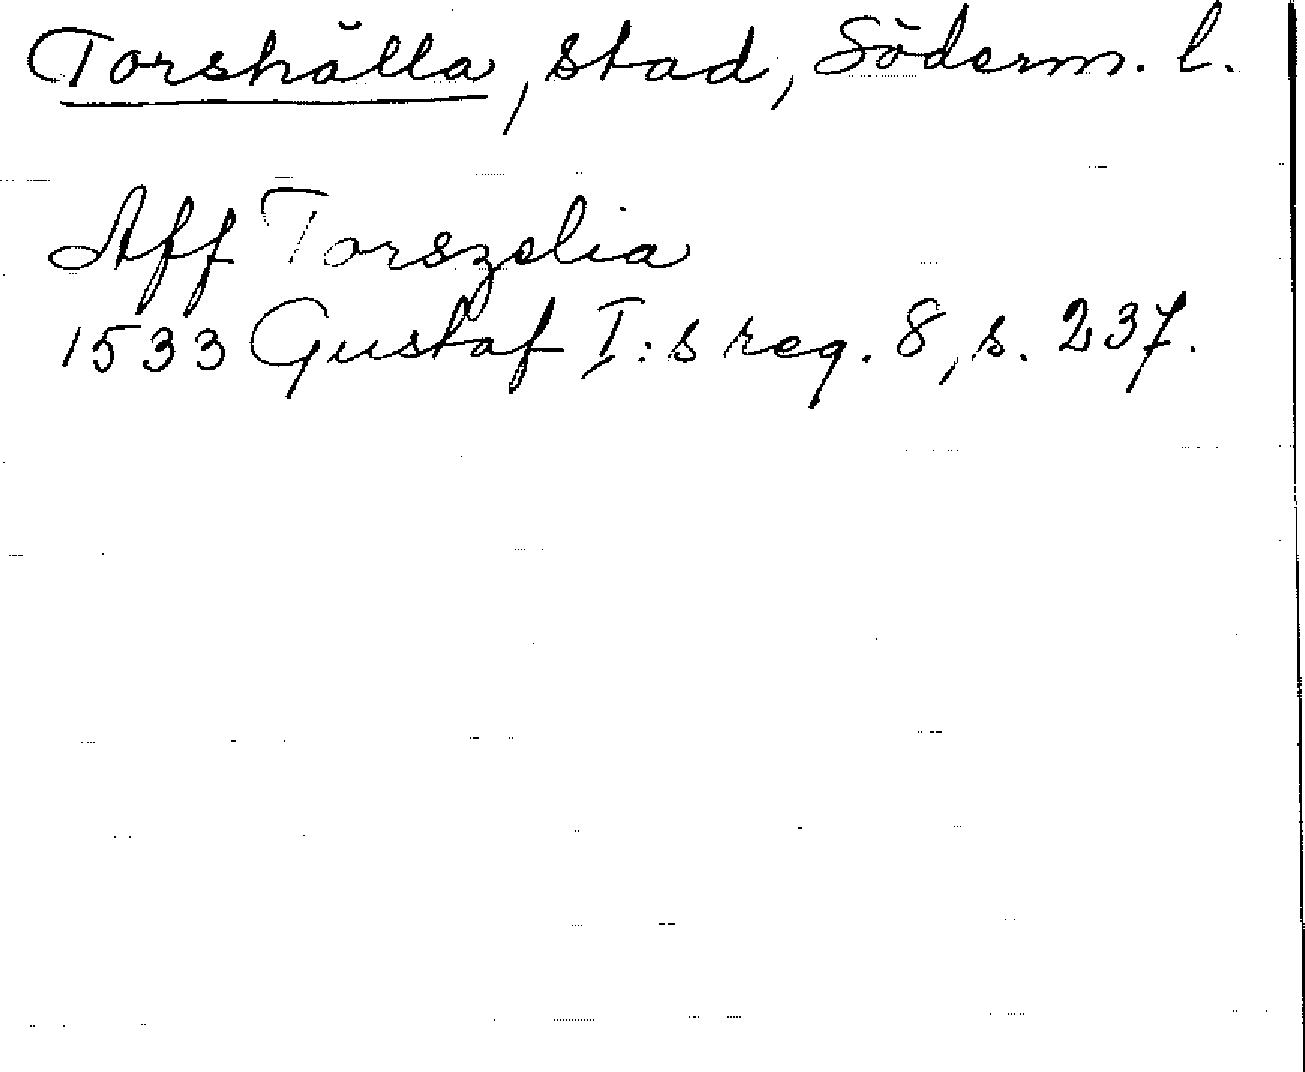 Torshälla, stad, Söderm. l.
Aff Torszelia
1533 Gustaf I:s reg. 8, s. 237.